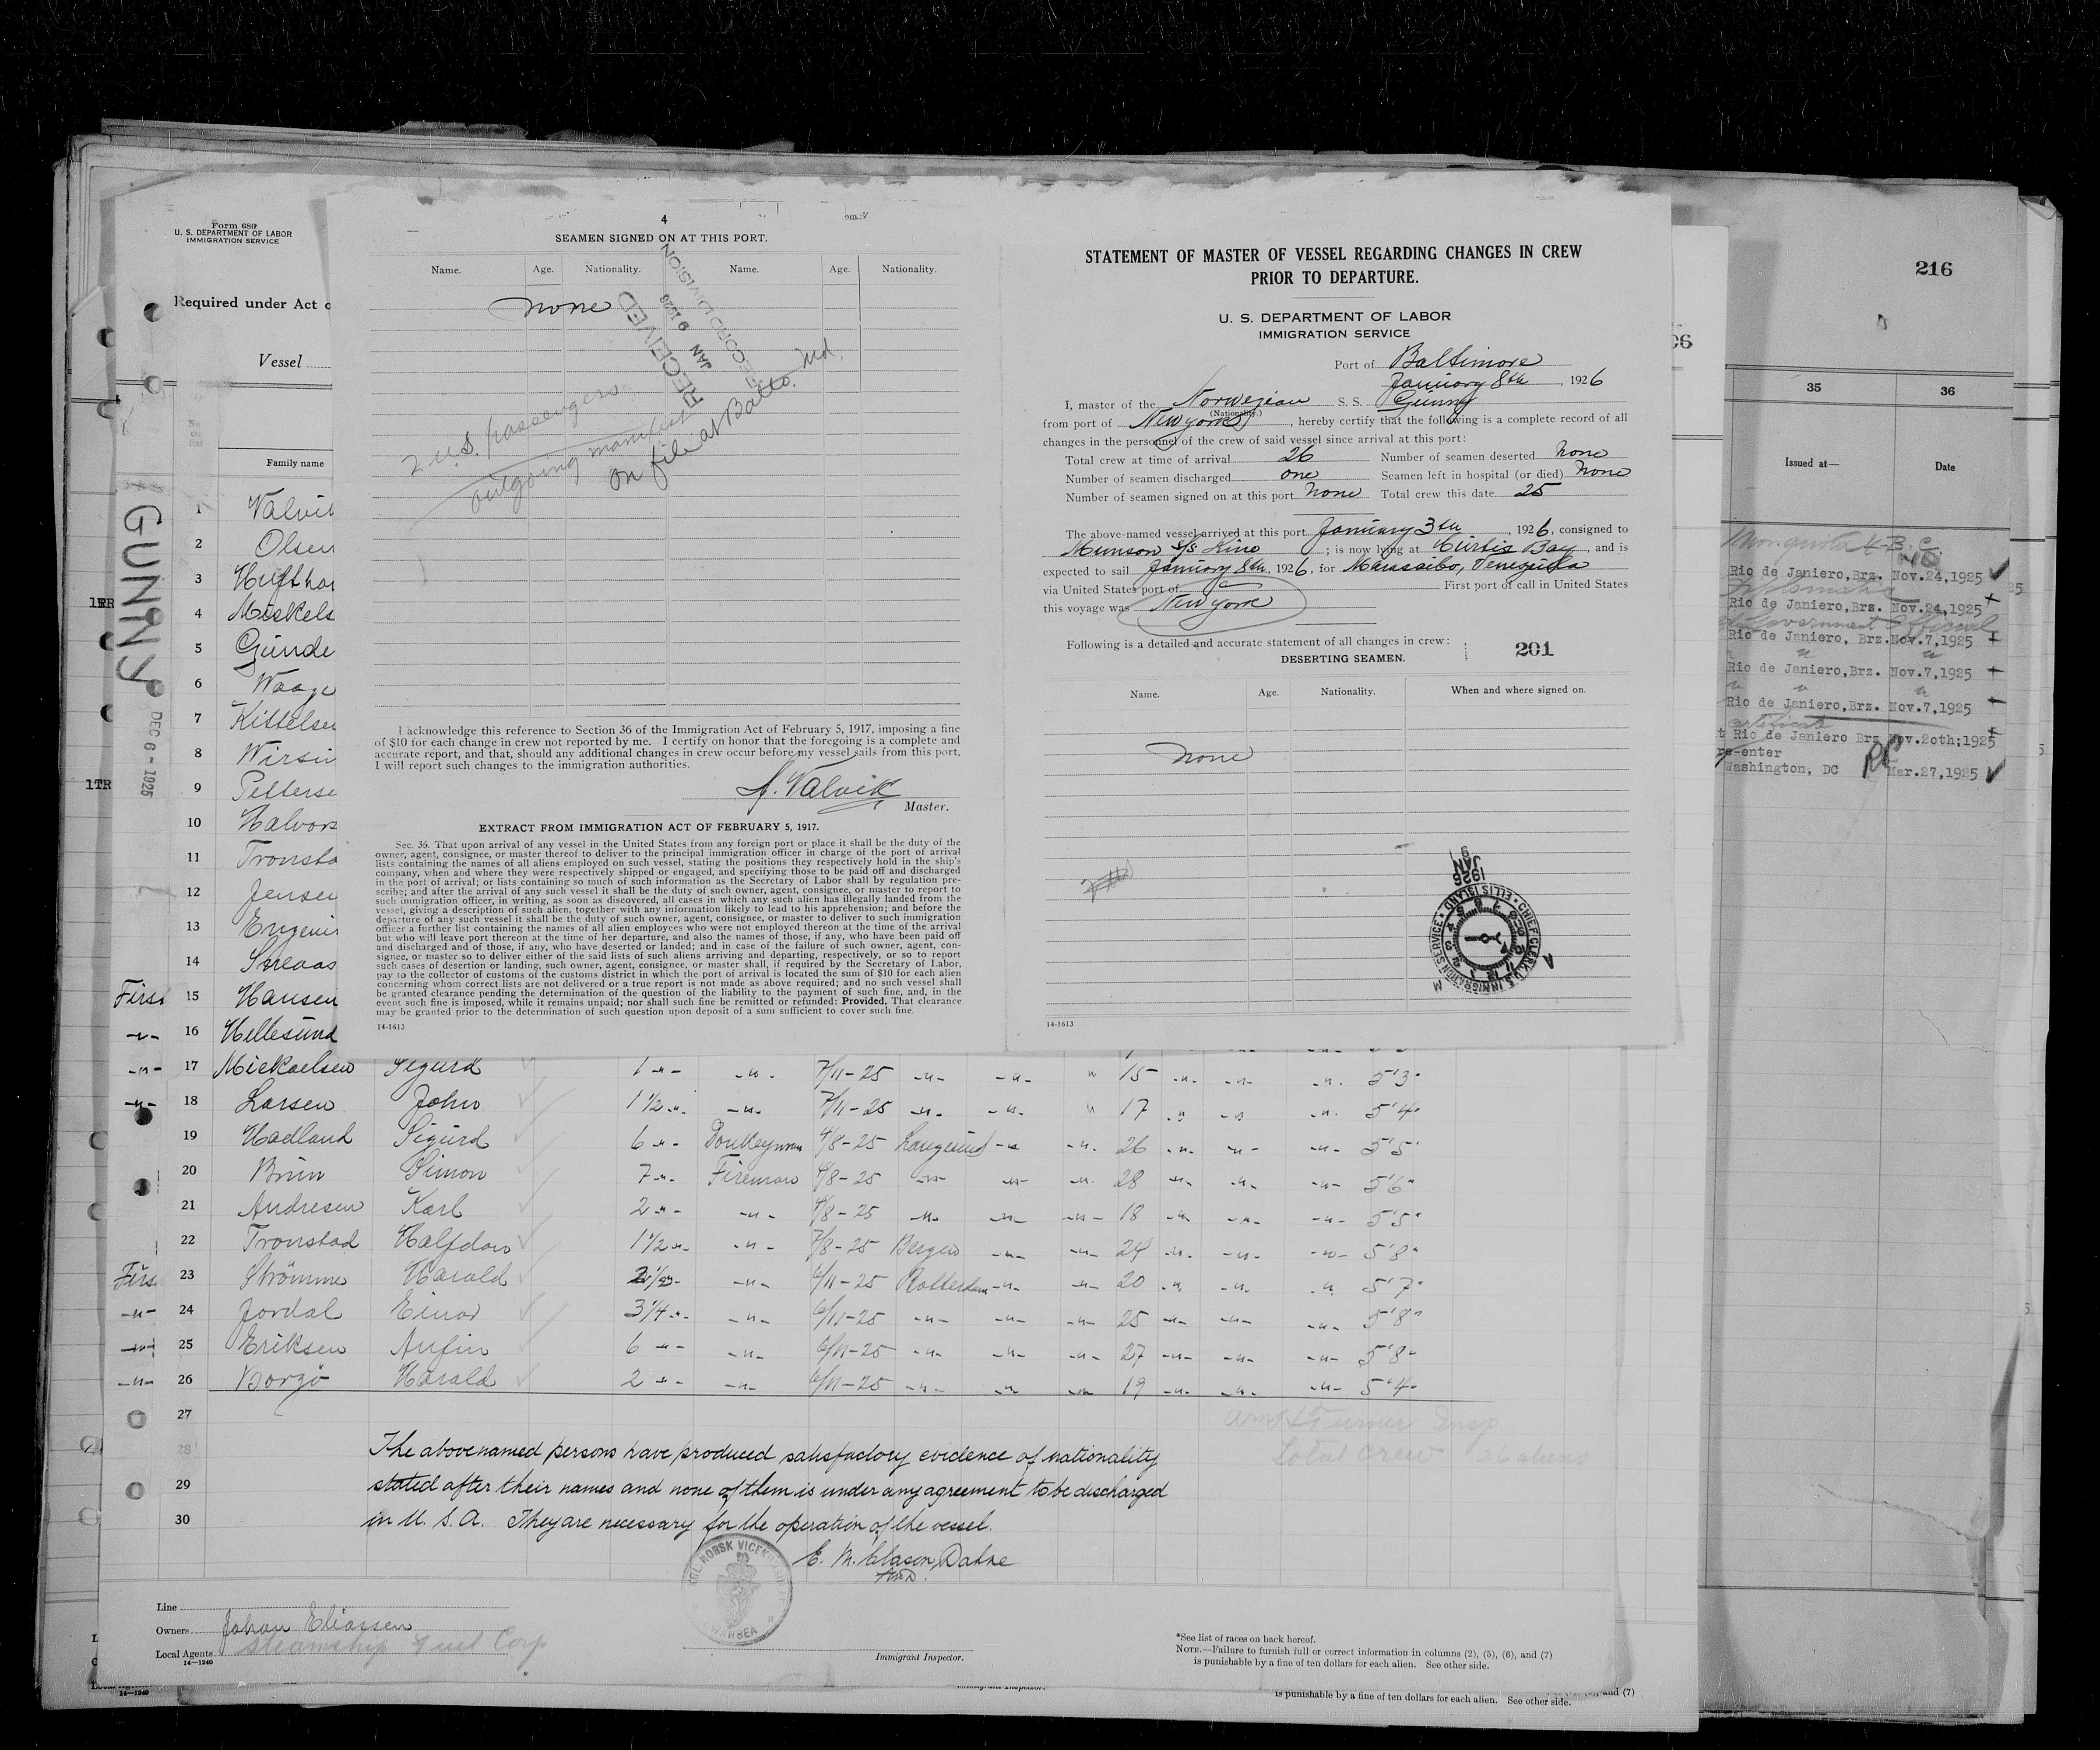 Form 680
U. S. DEPARTMENT OF LABOR
IMMIGRATION SERVICE
Required under Act o
Vessel
No. on list
Family name
GUNNY
DEC 6 - 1925
1TR
1 Valvik
2 Olsen
3 Hufthar
4 Miskels
5 Gunde
6 Waage
7 Kittelsen
8 Wirsin
9 Pellerse
10 Halvors
11 Tronsta
12 Jensen
13
14
First 15 Hansen
-"- 16 Hellesund
4
SEAMEN SIGNED ON AT THIS PORT.
Name. Age. Nationality. Name. Age. Nationality.
None
RECEIVED
JAN 9 1926
RECORD DIVISION
2 U.S. passengers
outgoing manifest
on file at Balto. Md.
I acknowledge this reference to Section 36 of the Immigration Act of February 5, 1917, imposing a fine
of $10 for each change in crew not reported by me. I certify on honor that the foregoing is a complete and
accurate report, and that, should any additional changes in crew occur before my vessel sails from this port,
I will report such changes to the immigration authorities.
Valvik
Master.
EXTRACT FROM IMMIGRATION ACT OF FEBRUARY 5, 1917.
Sec. 36. That upon arrival of any vessel in the United States from any foreign port or place it shall be the duty of the
owner, agent, consignee, or master thereof to deliver to the principal immigration officer in charge of the port of arrival
lists containing the names of all aliens employed on such vessel, stating the positions they respectively hold in the ship's
company, when and where they were respectively shipped or engaged, and specifying those to be paid off and discharged
in the port of arrival; or lists containing so much of such information as the Secretary of Labor shall by regulation pre-
scribe; and after the arrival of any such vessel it shall be the duty of such owner, agent, consignee, or master to report to
such immigration officer, in writing, as soon as discovered, all cases in which any such alien has illegally landed from the
vessel, giving a description of such alien, together with any information likely to lead to his apprehension; and before the
departure of any such vessel it shall be the duty of such owner, agent, consignee, or master to deliver to such immigration
officer a further list containing the names of all alien employees who were not employed thereon at the time of the arrival
but who will leave port thereon at the time of her departure, and also the names of those, if any, who have been paid off
and discharged and of those, if any, who have deserted or landed; and in case of the failure of such owner, agent, con-
signee, or master so to deliver either of the said lists of such aliens arriving and departing, respectively, or so to report
such cases of desertion or landing, such owner, agent, consignee, or master shall, if required by the Secretary of Labor,
pay to the collector of customs of the customs district in which the port of arrival is located the sum of $10 for each alien
concerning whom correct lists are not delivered or a true report is not made as above required; and no such vessel shall
be granted clearance pending the determination of the question of the liability to the payment of such fine, and, in the
event such fine is imposed, while it remains unpaid; nor shall such fine be remitted or refunded: Provided, That clearance
may be granted prior to the determination of such question upon deposit of a sum sufficient to cover such fine.
14-1613
STATEMENT OF MASTER OF VESSEL REGARDING CHANGES IN CREW
PRIOR TO DEPARTURE.
U. S. DEPARTMENT OF LABOR
IMMIGRATION SERVICE
Port of Baltimore
January 8th, 1926
I, master of the Norwegian S. S. Gunny
(Nationality.)
from port of New York, hereby certify that the following is a complete record of all
changes in the personnel of the crew of said vessel since arrival at this port:
Total crew at time of arrival 26 Number of seamen deserted None
Number of seamen discharged one Seamen left in hospital (or died) None
Number of seamen signed on at this port None Total crew this date 25
The above-named vessel arrived at this port January 3th, 1926, consigned to
Munson S/S Line; is now lying at Curtis Bay, and is
expected to sail January 8th, 1926, for Maracaibo, Venezuela
via United States port of First port of call in United States
this voyage was New York
Following is a detailed and accurate statement of all changes in crew:
201
DESERTING SEAMEN.
Name. Age. Nationality. When and where signed on.
None
9 JAN 1926
CHIEF CLERK, U.S. IMMIGRATION SERVICE • ELLIS ISLAND •
14-1613
216
35 36
Issued at— Date
Rio de Janiero,Brz. Nov.24,1925
Rio de Janiero,Brz. Nov.24,1925
Government Official
Rio de Janiero, Brz. Nov.7,1925
Rio de Janiero,Brz. Nov.7,1925
Rio de Janiero,Brz. Nov.7,1925
Rio de Janiero Brz Nov.2oth;1925
re-enter
Washington, DC Mar.27,1925
-"- 17 Mickaelsen Sigurd 1 -"- -"- 7/11-25 -"- -"- " 15 -"- -"- -"- 5'3"
-"- 18 Larsen John 1 1/2 -"- -"- 7/11-25 -"- -"- " 17 -"- -"- -"- 5'4"
19 Hadland Sigurd 6 -"- Donkeyman 4/8-25 Langesund -"- -"- 26 -"- -"- -"- 5'5"
20 Brun Simon 7 -"- Fireman 4/8-25 -"- -"- -"- 28 -"- -"- -"- 5'6"
21 Andresen Karl 2 -"- -"- 4/8-25 -"- -"- -"- 18 -"- -"- -"- 5'5"
22 Tronstad Halfdan 1 1/2 -"- -"- 7/8-25 Bergen -"- -"- 24 -"- -"- -"- 5'8"
Firs 23 Strömme Harald -"- 6/11-25 Rotterdam -"- -"- 20 -"- -"- -"- 5'7"
-"- 24 Jordal Einar 3 1/4 -"- -"- 6/11-25 -"- -"- -"- 25 -"- -"- -"- 5'8"
-"- 25 Eriksen Anfin 6 -"- -"- 6/11-25 -"- -"- -"- 27 -"- -"- -"- 5'8"
-"- 26 Borgö Harald 2 -"- -"- 6/11-25 -"- -"- -"- 19 -"- -"- -"- 5'4"
27
Turner Insp.
28
Total crew 26 aliens
The abovenamed persons have produced satisfactory evidence of nationality
29 stated after their names and none of them is under any agreement to be discharged
30 in U. S. A. They are necessary for the operation of the vessel.
E. M. Clason Dahne
KGL NORSK VICEKONSULAT
SWANSEA
Line
Owners Johan Eliassen
Local Agents Steamship Fuel Corp
14-1240
Immigrant Inspector.
*See list of races on back hereof.
NOTE.—Failure to furnish full or correct information in columns (2), (5), (6), and (7)
is punishable by a fine of ten dollars for each alien. See other side.
14-1240
is punishable by a fine of ten dollars for each alien. See other side.
and (7)